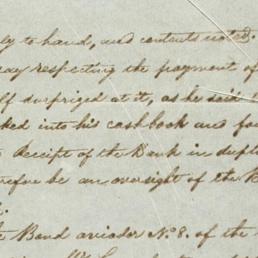 ly to hand, and contents noted.
ay respecting the payment of
lf surprized at it, as he said
ked into his cashbook and fou
Receipt of the Bank in dupl
refore be an oversight of the B
e Bond arrieder No. 8. of the